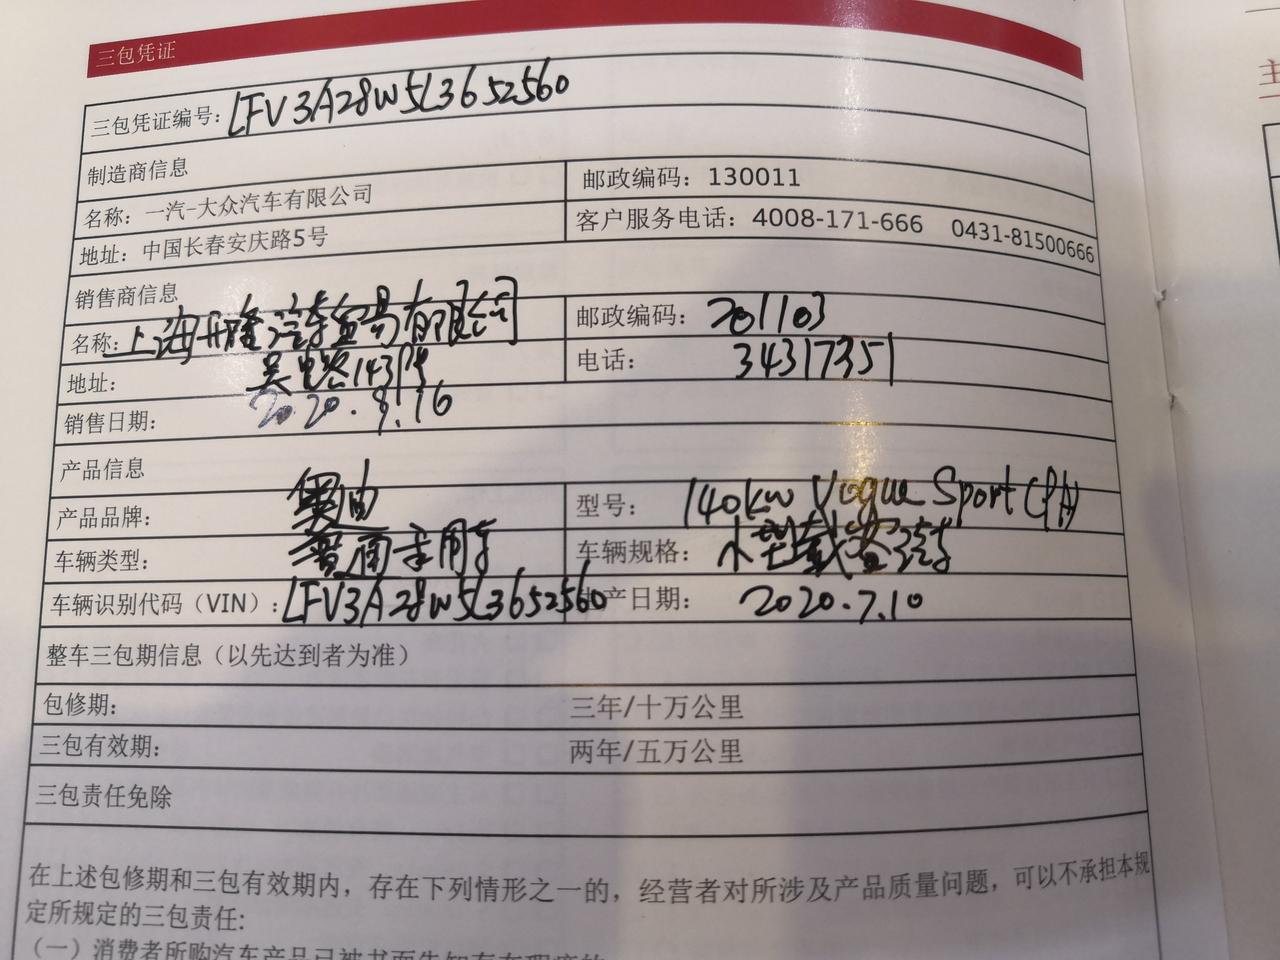 三包凭证
三包凭证编号: LFV3A28W5L3652560
制造商信息
名称: 一汽-大众汽车有限公司 邮政编码: 130011
地址: 中国长春安庆路5号 客户服务电话: 4008-171-666 0431-81500666
销售商信息
名称: 上海开隆汽车贸易有限公司 邮政编码: 201103
地址: 吴中路1439号 电话: 34317351
销售日期: 2020.8.16
产品信息
产品品牌: 奥迪 型号: 140kw Vogue Sport
车辆类型: 普通乘用车 车辆规格: 小型载客汽车
车辆识别代码（VIN）: LFV3A28W5L3652560 生产日期: 2020.7.10
整车三包期信息（以先达到者为准）
包修期: 三年/十万公里
三包有效期: 两年/五万公里
三包责任免除
在上述包修期和三包有效期内，存在下列情形之一的，经营者对所涉及产品质量问题，可以不承担本规
定所规定的三包责任:
（一）消费者所购汽车产品已被书面告知存在瑕疵的
主